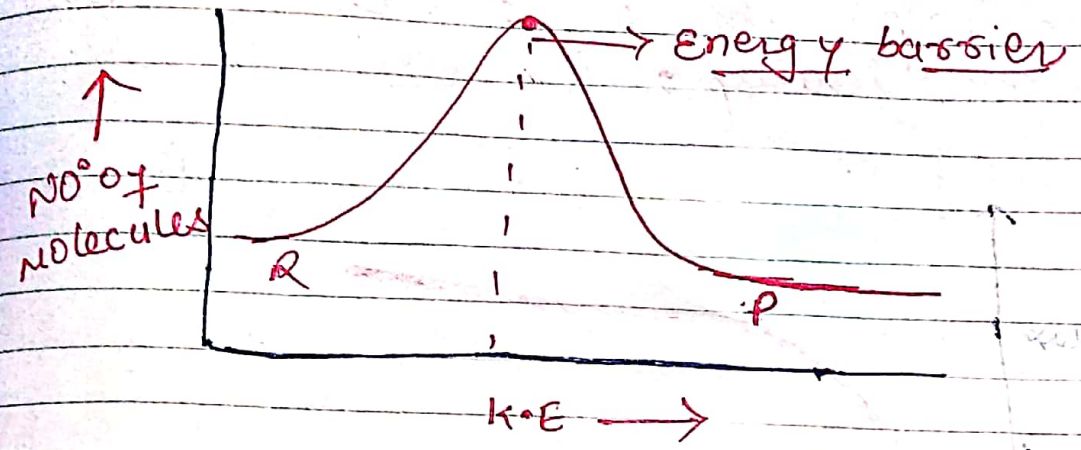 Energy barrier
No° of
Molecules
R
P
K.E